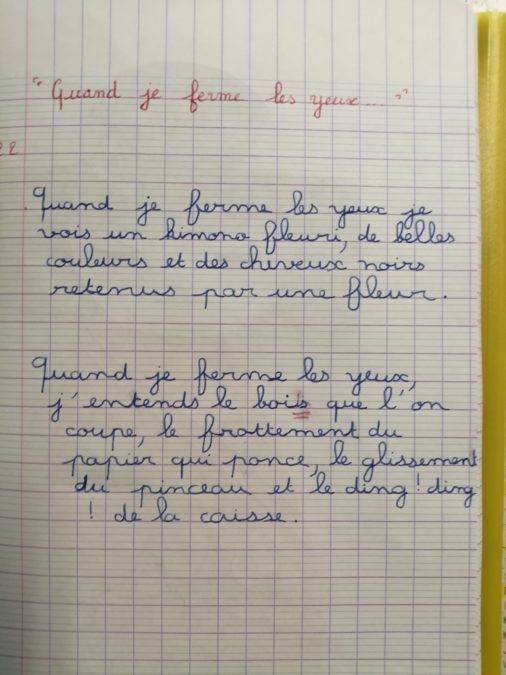 "Quand je ferme les yeux..."
22
Quand je ferme les yeux je
vois un kimono fleuri, de belles
couleurs et des cheveux noirs
retenus par une fleur.
Quand je ferme les yeux,
j'entends le bois que l'on
coupe, le frottement du
papier qui ponce, le glissement
du pinceau et le ding! ding
! de la caisse.